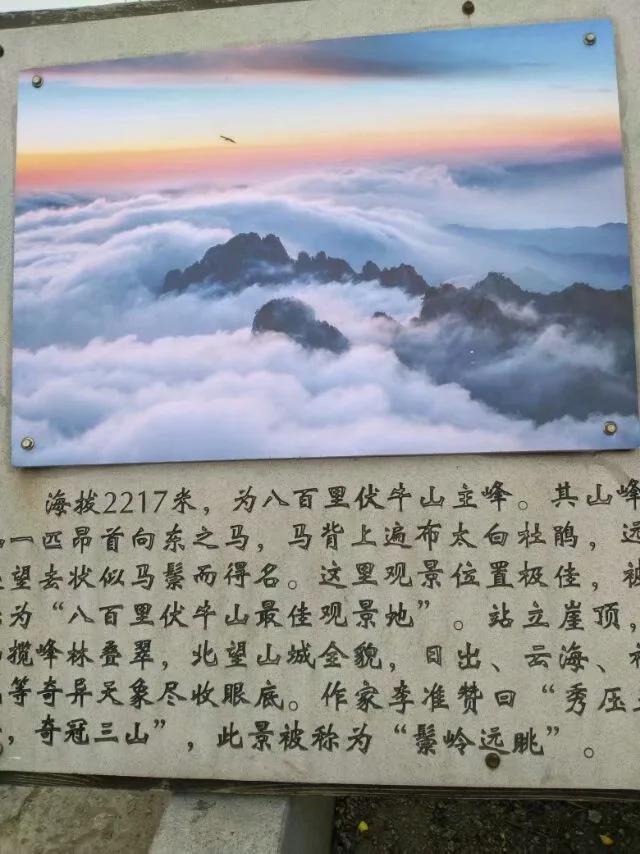 海拔2217米，为八百里伏牛山主峰。其山峰
一匹昂首向东之马，马背上遍布太白杜鹃，远
望去状似马鬃而得名。这里观景位置极佳，被
为“八百里伏牛山最佳观景地”。站立崖顶，
揽峰林叠翠，北望山城全貌，日出、云海、
等奇异天象尽收眼底。作家李准赞曰“秀压
，奇冠三山”，此景被称为“鬃岭远眺”。